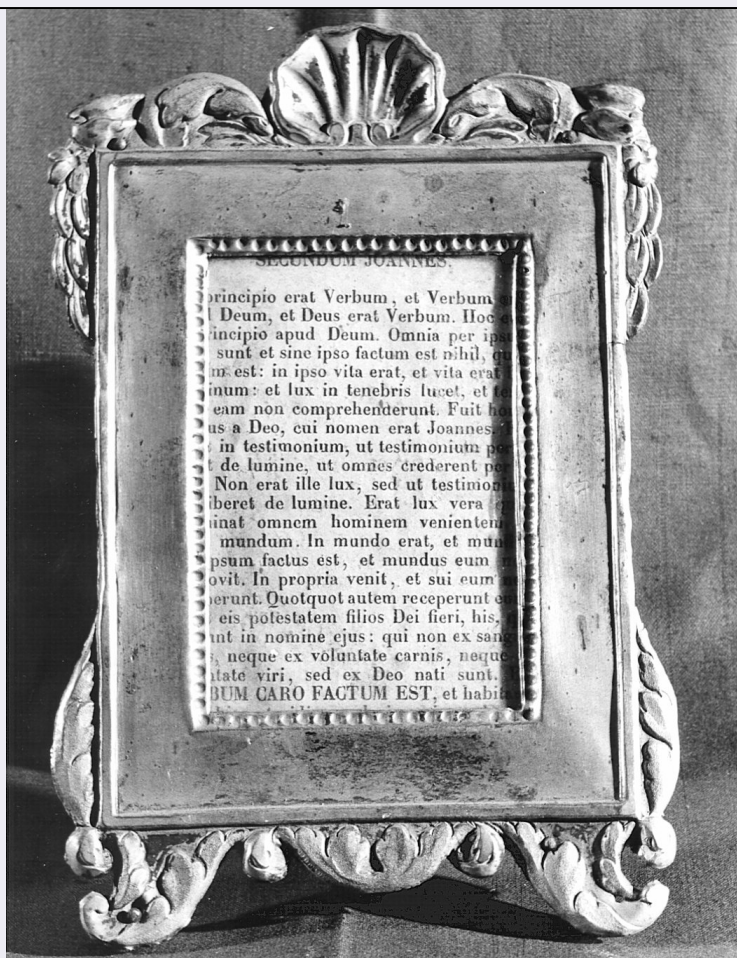 SECUNDUM JOANNES.
principio erat Verbum, et Verbum
Deum, et Deus erat Verbum. Hoc
incipio apud Deum. Omnia per ips
sunt et sine ipso factum est nihil, qu
m est: in ipso vita erat, et vita erat
inum: et lux in tenebris lucet, et te
eam non comprehenderunt. Fuit ho
us a Deo, cui nomen erat Joannes.
in testimonium, ut testimonium per
t de lumine, ut omnes crederent per
Non erat ille lux, sed ut testimoni
iberet de lumine. Erat lux vera
inat omnem hominem venientem
mundum. In mundo erat, et mun
psum factus est, et mundus eum
ovit. In propria venit, et sui eum
erunt. Quotquot autem receperunt eu
eis potestatem filios Dei fieri, his,
nt in nomine ejus: qui non ex sang
, neque ex voluntate carnis, neque
ntate viri, sed ex Deo nati sunt.
BUM CARO FACTUM EST, et habit